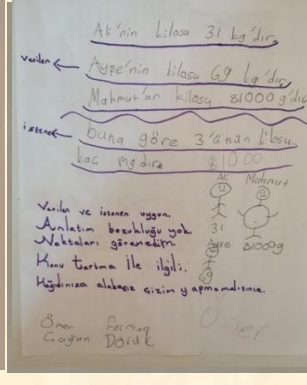 Ali'nin kilosu 31 kg'dır.
verilen
Ayşe'nin kilosu 69 kg'dır.
Mahmut'un kilosu 81000 g'dır
istenen
buna göre 3'ünün kilosu
kaç mg dır. 81000
Ali Mahmut
31
Ayşe 81000g
69
Verilen ve istenen uygun.
Anlatım bozukluğu yok.
Noktaları göremedim.
Konu tartma ile ilgili.
Kağıdınıza alakasız çizim yapmamalısınız.
Ömer
Çağan Doruk